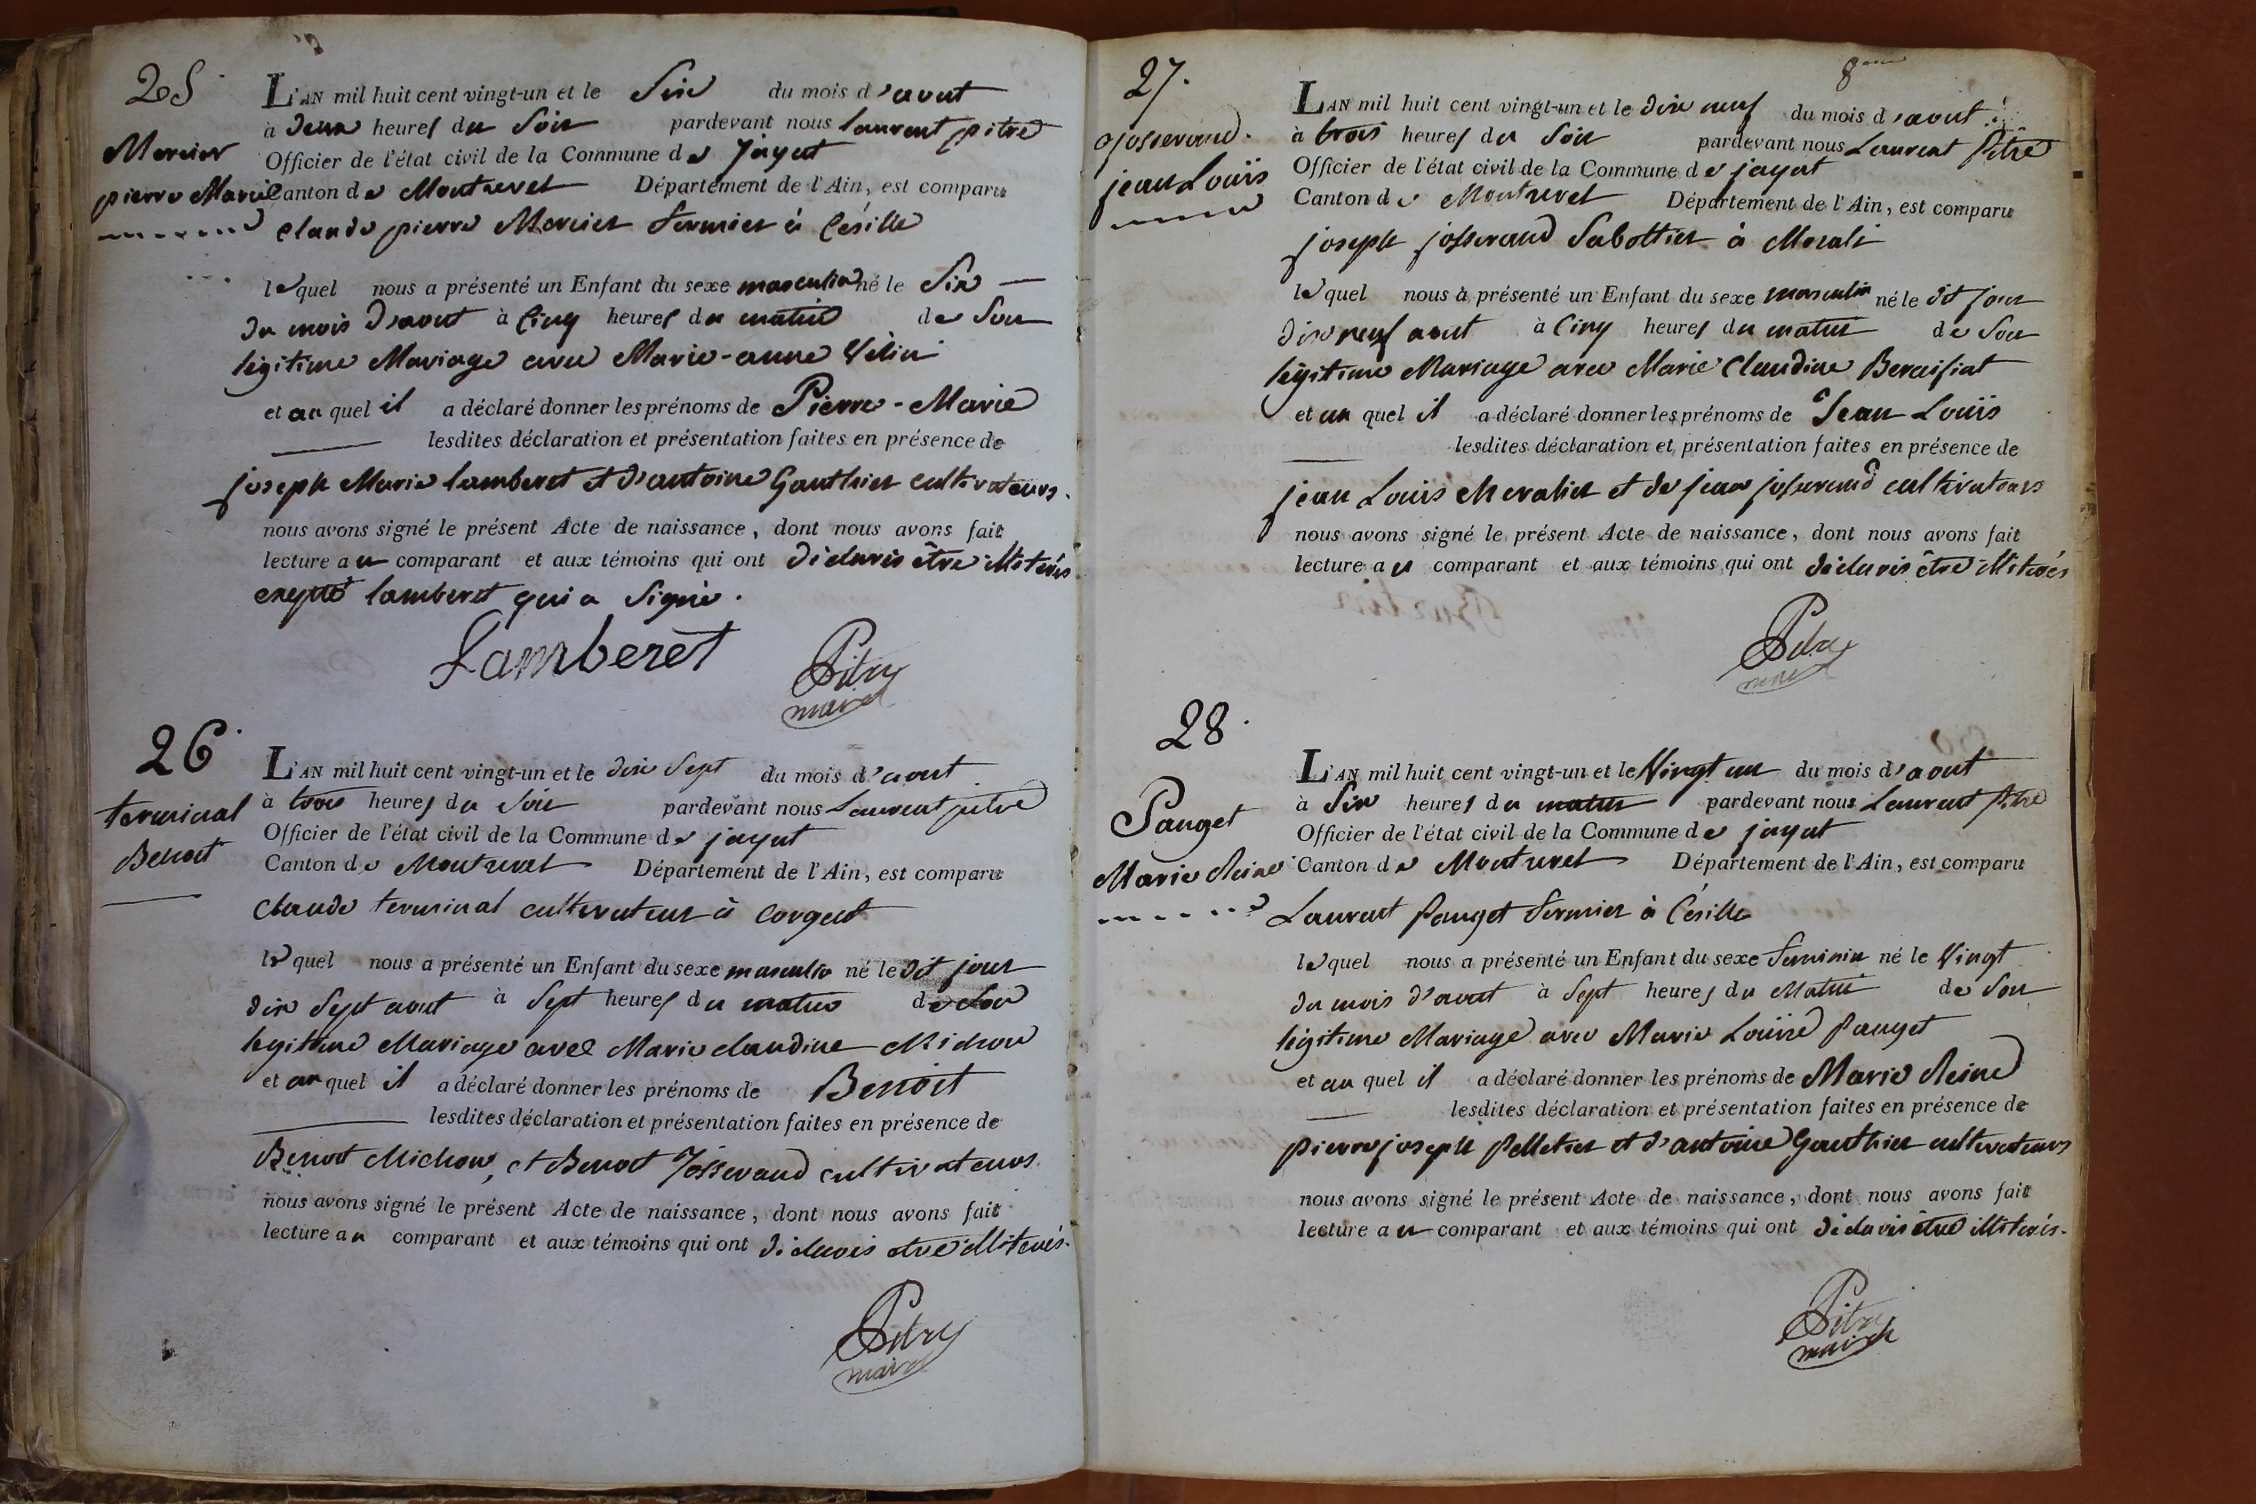 25.
Mercier
pierre Marie
L'AN mil huit cent vingt-un et le Six du mois d'aout
à deux heures du Soir pardevant nous laurent pitre
Officier de l'état civil de la Commune de Jayat
Canton de Montrevel Département de l'Ain, est comparu
claude pierre Mercier fermier à Césille
lequel nous a présenté un Enfant du sexe masculin né le Six
du mois d'aout à Cinq heures du matin de Son
légitime Mariage avec Marie-anne Vélin
et au quel il a déclaré donner les prénoms de Pierre-Marie
lesdites déclaration et présentation faites en présence de
joseph Marie lamberet et d'antoine Gauthier cultivateurs.
nous avons signé le présent Acte de naissance, dont nous avons fait
lecture au comparant et aux témoins qui ont déclarés être illitérés
excepté lamberet qui a Signé.
Lamberet Pitre
maire
26.
terminal
Benoit
L'AN mil huit cent vingt-un et le dix Sept du mois d'aout
à trois heures du Soir pardevant nous Laurent pitre
Officier de l'état civil de la Commune de jayat
Canton de Montrevel Département de l'Ain, est comparu
Claude terminal cultivateur à Corgeat
lequel nous a présenté un Enfant du sexe masculin né le dit jour
dix Sept aout à Sept heures du matin de Son
légitime Mariage avec Marie claudine Michon
et au quel il a déclaré donner les prénoms de Benoit
lesdites déclaration et présentation faites en présence de
Benoit Michon, et Benoit Josserand cultivateurs.
nous avons signé le présent Acte de naissance, dont nous avons fait
lecture au comparant et aux témoins qui ont déclarés etre illiterés.
Pitre
maire
8
27.
josserand.
jean Louis
L'AN mil huit cent vingt-un et le dix neuf du mois d'aout
à trois heures du Soir pardevant nous Laurent Pitre
Officier de l'état civil de la Commune de jayat
Canton de Montrevel Département de l'Ain, est comparu
joseph josserand Sabottier à Morali
lequel nous a présenté un Enfant du sexe masculin né le dit jour
dix neuf aout à Cinq heures du matin de Son
légitime Mariage avec Marie Claudine Beraisiat
et au quel il a déclaré donner les prénoms de Jean Louis
lesdites déclaration et présentation faites en présence de
jean Louis chevalier et de jean josserand cultivateurs
nous avons signé le présent Acte de naissance, dont nous avons fait
lecture au comparant et aux témoins qui ont déclarés être illiterés
Pitre
maire
28.
Pauget
Marie Reine
L'AN mil huit cent vingt-un et le Vingt un du mois d'aout
à Six heures du matin pardevant nous Laurent Pitre
Officier de l'état civil de la Commune de jayat
Canton de Montrevel Département de l'Ain, est comparu
Laurent Pauget fermier à Césille
lequel nous a présenté un Enfant du sexe feminin né le Vingt
du mois d'aout à Sept heures du Matin de Son
légitime Mariage avec Marie Louise Pauget
et au quel il a déclaré donner les prénoms de Marie Reine
lesdites déclaration et présentation faites en présence de
pierre joseph pelletier et d'antoine Gauthier cultivateurs
nous avons signé le présent Acte de naissance, dont nous avons fait
lecture au comparant et aux témoins qui ont déclarés être illiterés.
Pitre
maire